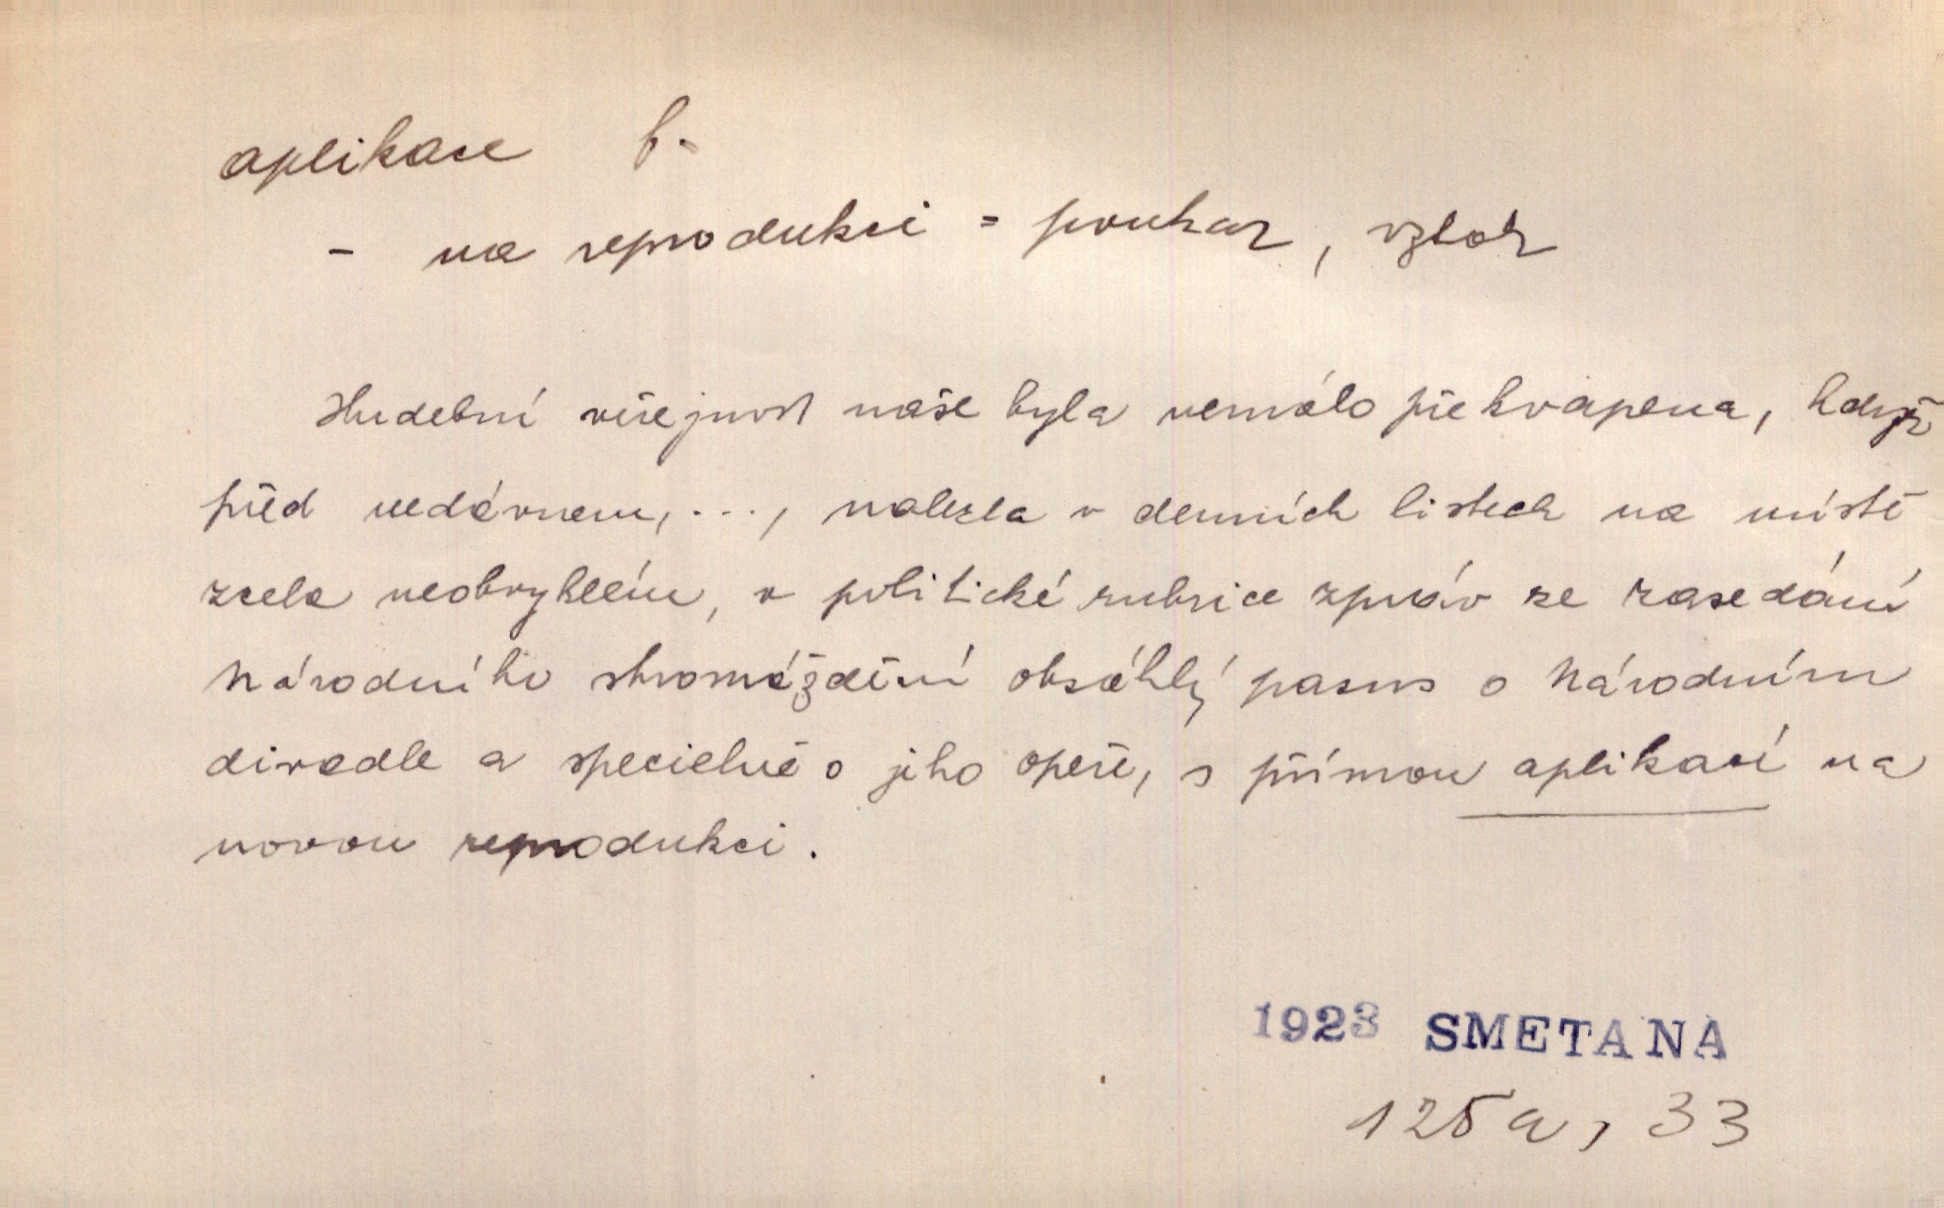 aplikace f.
- na reprodukci = poukaz, vztah
Hudební veřejnost naše byla nemálo překvapena, když
před nedávnem, ..., nalezla v denních listech na místě
zcela neobvyklém, v politické rubrice zpráv ze zasedání
Národního shromáždění obsáhlý pasus o Národním
divadle a specielně o jeho opeře, s přímou aplikací na
novou reprodukci.
1923 SMETANA
125a, 33